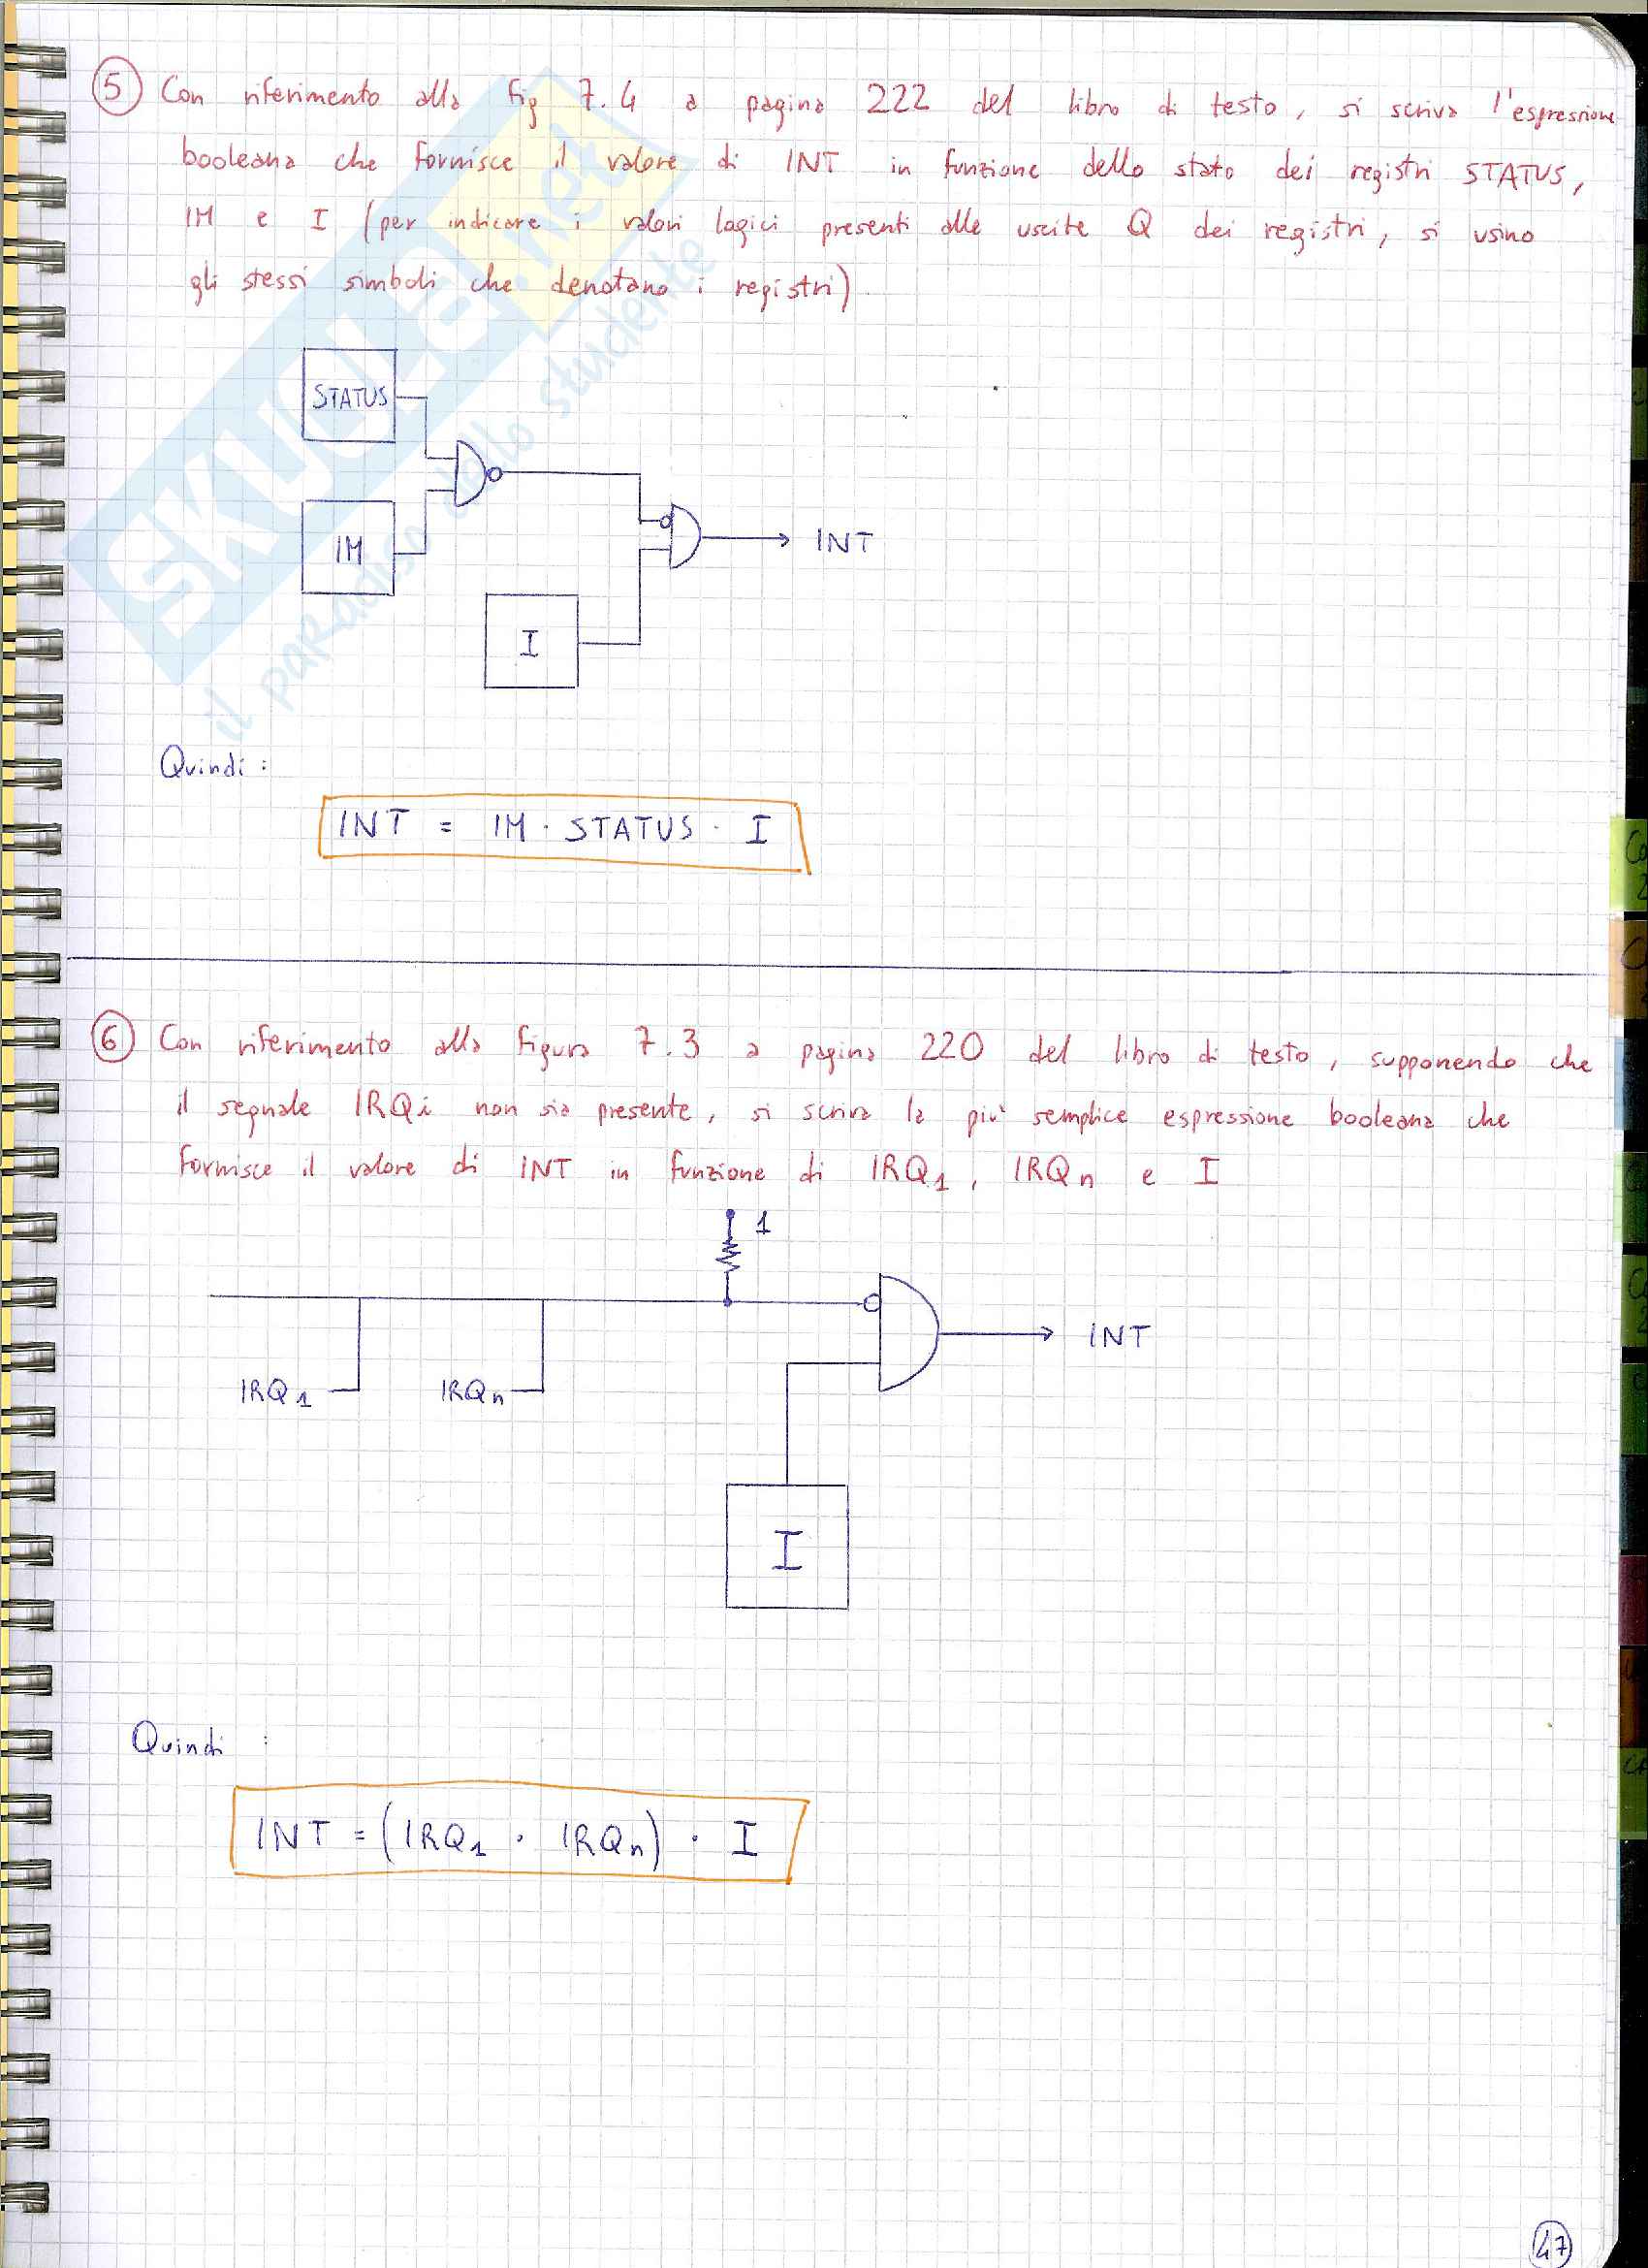 5 Con riferimento alla fig 7.4 a pagina 222 del libro di testo, si scriva l'espressione
booleana che fornisce il valore di INT in funzione dello stato dei registri STATUS,
IM e I (per indicare i valori logici presenti alle uscite Q dei registri, si usino
gli stessi simboli che denotano i registri).
STATUS
IM
I
INT
Quindi:
INT = IM · STATUS · I
6 Con riferimento alla figura 7.3 a pagina 220 del libro di testo, supponendo che
il segnale IRQi non sia presente, si scriva la più semplice espressione booleana che
fornisce il valore di INT in funzione di IRQ1, IRQn e I
1
IRQ1
IRQn
INT
I
Quindi :
INT = (IRQ1 · IRQn) · I
47
SKUOLA.net
il paradiso dello studente